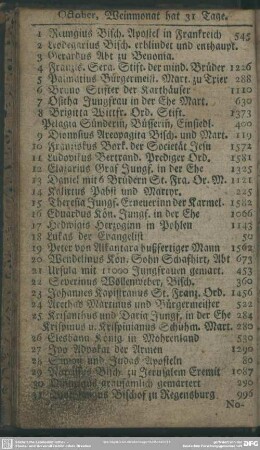 October, Weinmonat hat 31 Tage.
1 Remigius Bisch. Apostel in Frankreich 545
2 Leodegarius Bisch. erblindet und enthaupt.
3 Gerardus Abt zu Beuonia.
4 Franzis. Sera. Stift. der mind. Brüder 1226
5 Palmatius Bürgermeist. Mart. zu Trier 288
6 Bruno Stifter der Karthäuser 1110
7 Ositha Jungfrau in der Ehe Mart. 630
8 Brigitta Wittfr. Ord. Stift. 1373
Pelagia Sünderin, Büsserin, Einsiedl. 400
9 Dionysius Areopagita Bisch. und Mart. 119
10 Franziskus Bork. der Societät Jesu 1572
11 Ludovikus Bertrand. Prediger Ord. 1581
12 Elzearius Graf Jungf. in der Ehe 1325
13 Daniel mit 6 Brüdern St. Fra. Or. M. 1221
14 Kalixtus Pabst und Martyr. 225
15 Theresia Jungf. Erneuerinn der Karmel. 1582
16 Eduardus Kön. Jungf. in der Ehe 1066
17 Hedwigis Herzoginn in Pohlen 1143
18 Lukas der Evangelist 50
19 Peter von Alkantara bußfertiger Mann 1562
20 Wendelinus Kön. Sohn Schafhirt, Abt 673
21 Ursula mit 11000 Jungfrauen gemart. 453
22 Severinus Bisch. 360
23 Johannes Kapistranus St. Franz. Ord. 1456
24 Arethas Martinus und Bürgermeister 522
25 Krisanthus und Daria Jungf. in der Ehe 284
Krispinus u. Krispinianus Schuhm. Mart. 280
26 Elesbaan König in Mohrenland 530
27 Ivo Advokat der Armen 1290
28 Simon und Judas Aposteln 80
29 Narzissus Bisch. zu Jerusalem Eremit 1087
30 grausamlich gemartert 290
31 Wolfgangus Bischof zu Regensburg 995
No-